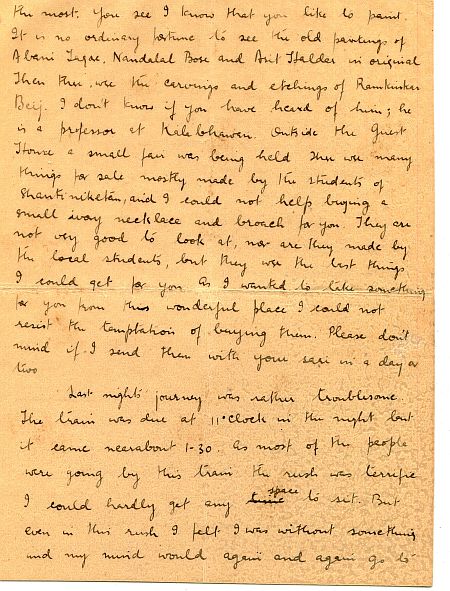 the most. You see I know that you like to paint.
It is no ordinary fortune to see the old paintings of
Abani Tagore, Nandalal Bose and Asit Haldar in original
Then there were the carvings and etchings of Ramkinkar
Beij. I don't know if you have heard of him; he
is a professor at Kalabhawan. Outside the Guest
House a small fair was being held There were many
things for sale mostly made by the students of
Shantiniketan, and I could not help buying a
small ivory necklace and broach for you. They are
not very good to look at, nor are they made by
the local students, but they were the best things
I could get for you. As I wanted to take something
for you from this wonderful place I could not
resist the temptation of buying them. Please don't
mind if I send them with your sari in a day or
two
Last night's journey was rather troublesome.
The train was due at 11 o'clock in the night but
it came nearabout 1-30. As most of the people
were going by this train the rush was terrific
I could hardly get any space to sit. But
even in this rush I felt I was without something
and my mind would again and again go to